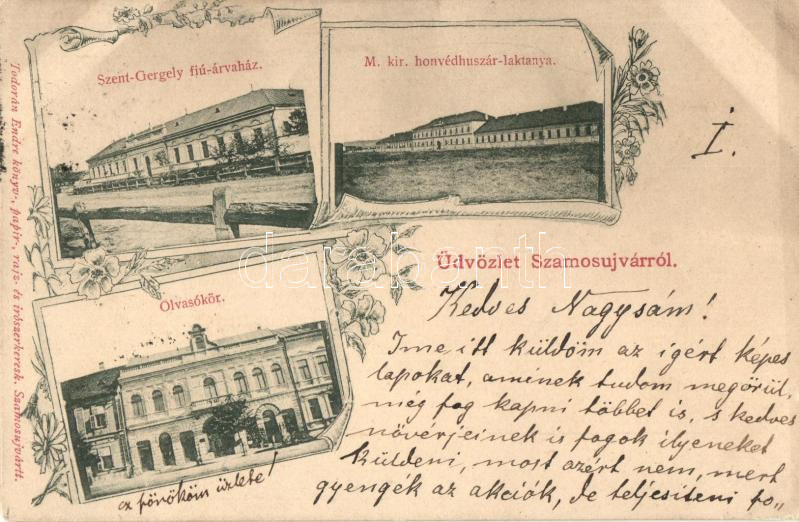 Szent-Gergely fiú-árvaház.
M. kir. honvédhuszár-laktanya.
I.
Üdvözlet Szamosujvárról.
darabanth
Olvasókör.
Todorán Endre könyv-, papir-, rajz- és irószerkeresk. Szamosujvártt.
Kedves Nagysám!
Ime, itt küldöm az igért képes
lapokat, aminek tudom megörül,
még fog kapni többet is, s kedves
növérjeinek is fogok ilyeneket
küldeni, most azért nem, mert
gyengék az akciók, de teljesiteni fo„
az főnököm üzlete!